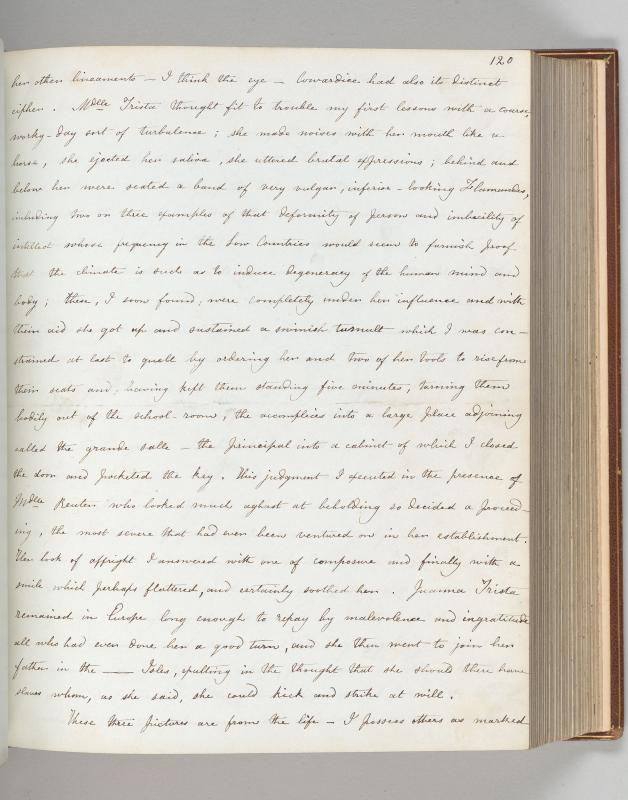 120
her other lineaments — I think the eye — Cowardice had also its distinct
cipher. Mdlle Trista thought fit to trouble my first lessons with a coarse,
worky-day sort of turbulence; she made noises with her mouth like a
horse, she ejected her saliva, she uttered brutal expressions; behind and
below her were seated a band of very vulgar, inferior-looking Flamandes,
including two or three examples of that deformity of person and imbecility of
intellect whose frequency in the Low Countries would seem to furnish proof
that the climate is such as to induce degeneracy of the human mind and
body; these, I soon found, were completely under her influence and with
their aid she got up and sustained a swinish tumult which I was con-
strained at last to quell by ordering her and two of her tools to rise from
their seats and, having kept them standing five minutes, turning them
bodily out of the school-room, the accomplices into a large place adjoining
called the grande salle — the principal into a cabinet of which I closed
the door and pocketed the key. This judgment I executed in the presence of
Mdlle Reuter who looked much aghast at beholding so decided a proceed-
ing, the most severe that had ever been ventured on in her establishment.
Her look of affright I answered with one of composure and finally with a
smile which perhaps flattered, and certainly soothed her. Juanna Trista
remained in Europe long enough to repay by malevolence and ingratitude
all who had ever done her a good turn, and she then went to join her
father in the —— Isles, exulting in the thought that she should there have
slaves whom, as she said, she could kick and strike at will.
These three pictures are from the life — I possess others as marked